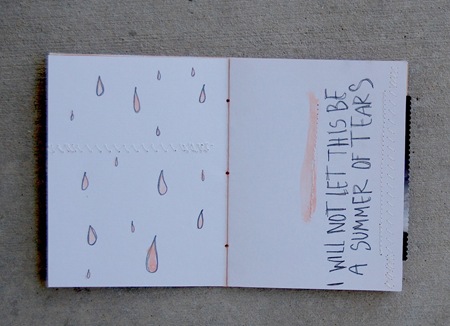 I WILL NOT LET THIS BE
A SUMMER OF TEARS